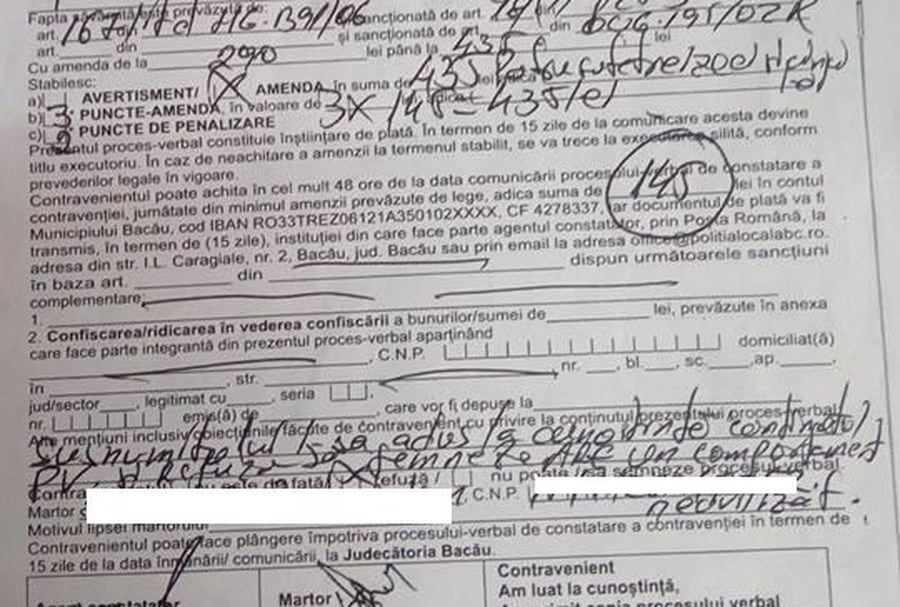 Fapta prevăzută de: HG. 1391/06 sancţionată de art.
art. din şi sancţionată de art. din OUG. 195/02R
art. lei până la 435 lei
Cu amenda de la 290
Stabilesc:
a) AVERTISMENT/ X AMENDA, în suma de 435 lei
b) 3 PUNCTE-AMENDA, în valoare de 3x145=435 lei
c) 2 PUNCTE DE PENALIZARE
Prezentul proces-verbal constituie înştiinţare de plată. În termen de 15 zile de la comunicare acesta devine
titlu executoriu. În caz de neachitare a amenzii la termenul stabilit, se va trece la executarea silită, conform
prevederilor legale în vigoare.
Contravenientul poate achita în cel mult 48 ore de la data comunicării procesului-verbal de constatare a
contravenţiei, jumătate din minimul amenzii prevăzute de lege, adica suma de 145 lei în contul
Municipiului Bacău, cod IBAN RO33TREZ06121A350102XXXX, CF 4278337, iar documentul de plată va fi
transmis, în termen de (15 zile), instituţiei din care face parte agentul constatator, prin Poşta Română, la
adresa din str. I.L. Caragiale, nr. 2, Bacău, jud. Bacău sau prin email la adresa office@politialocalabc.ro.
în baza art. din dispun următoarele sancţiuni
complementare:
1.
2. Confiscarea/ridicarea în vederea confiscării a bunurilor/sumei de lei, prevăzute în anexa
care face parte integrantă din prezentul proces-verbal aparţinând
, C.N.P. domiciliat(ă)
în , str. nr. , bl. , sc. , ap. ,
jud/sector , legitimat cu , seria ,
nr. emis(ă) de , care vor fi depuse la
Alte menţiuni inclusiv obiecţiunile făcute de contravenient cu privire la conţinutul prezentului proces-verbal
susnumitului i s-a adus la cunoştinţă
PV, şi refuză să semneze are un comportament
Contra este de faţă/ X refuză / nu poate să semneze procesul-verbal
Martor , C.N.P. necivilizat.
Motivul lipsei martorului
Contravenientul poate face plângere împotriva procesului-verbal de constatare a contravenţiei în termen de
15 zile de la data înmânării/ comunicării, la Judecătoria Bacău.
Agent constatator
Martor
Contravenient
Am luat la cunoştinţă,
Am primit copia procesului verbal